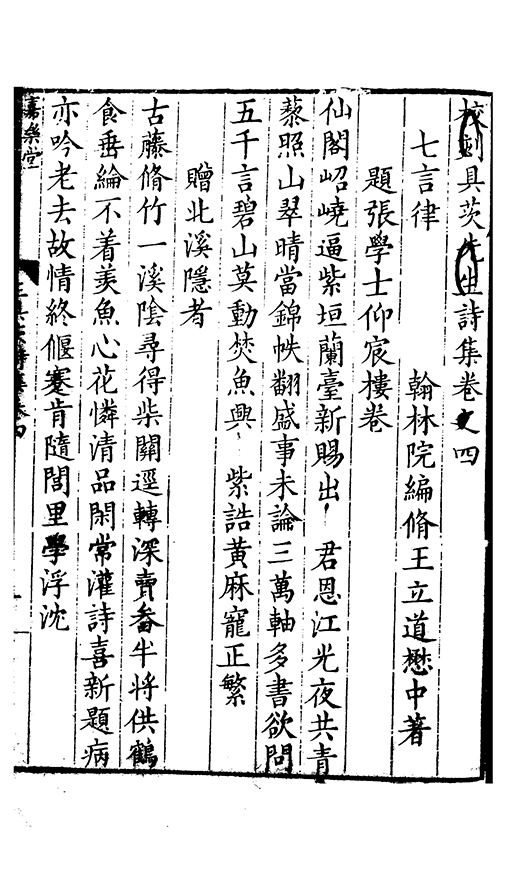 校刻具茨先生詩集卷之四
七言律　翰林院編脩王立道懋中著
題張學士仰宸樓卷
仙閣岧嶢逼紫垣蘭臺新賜出　君恩江光夜共青
藜照山翠晴當錦帙翻盛事未論三萬軸多書欲問
五千言碧山莫動焚魚興　紫誥黃麻寵正繁
贈北溪隱者
古藤脩竹一溪陰尋得柴關逕轉深賣畚半將供鶴
食垂綸不着羨魚心花憐清品閑常灌詩喜新題病
亦吟老去故情終偃蹇肯隨閭里學浮沈
嘉樂堂